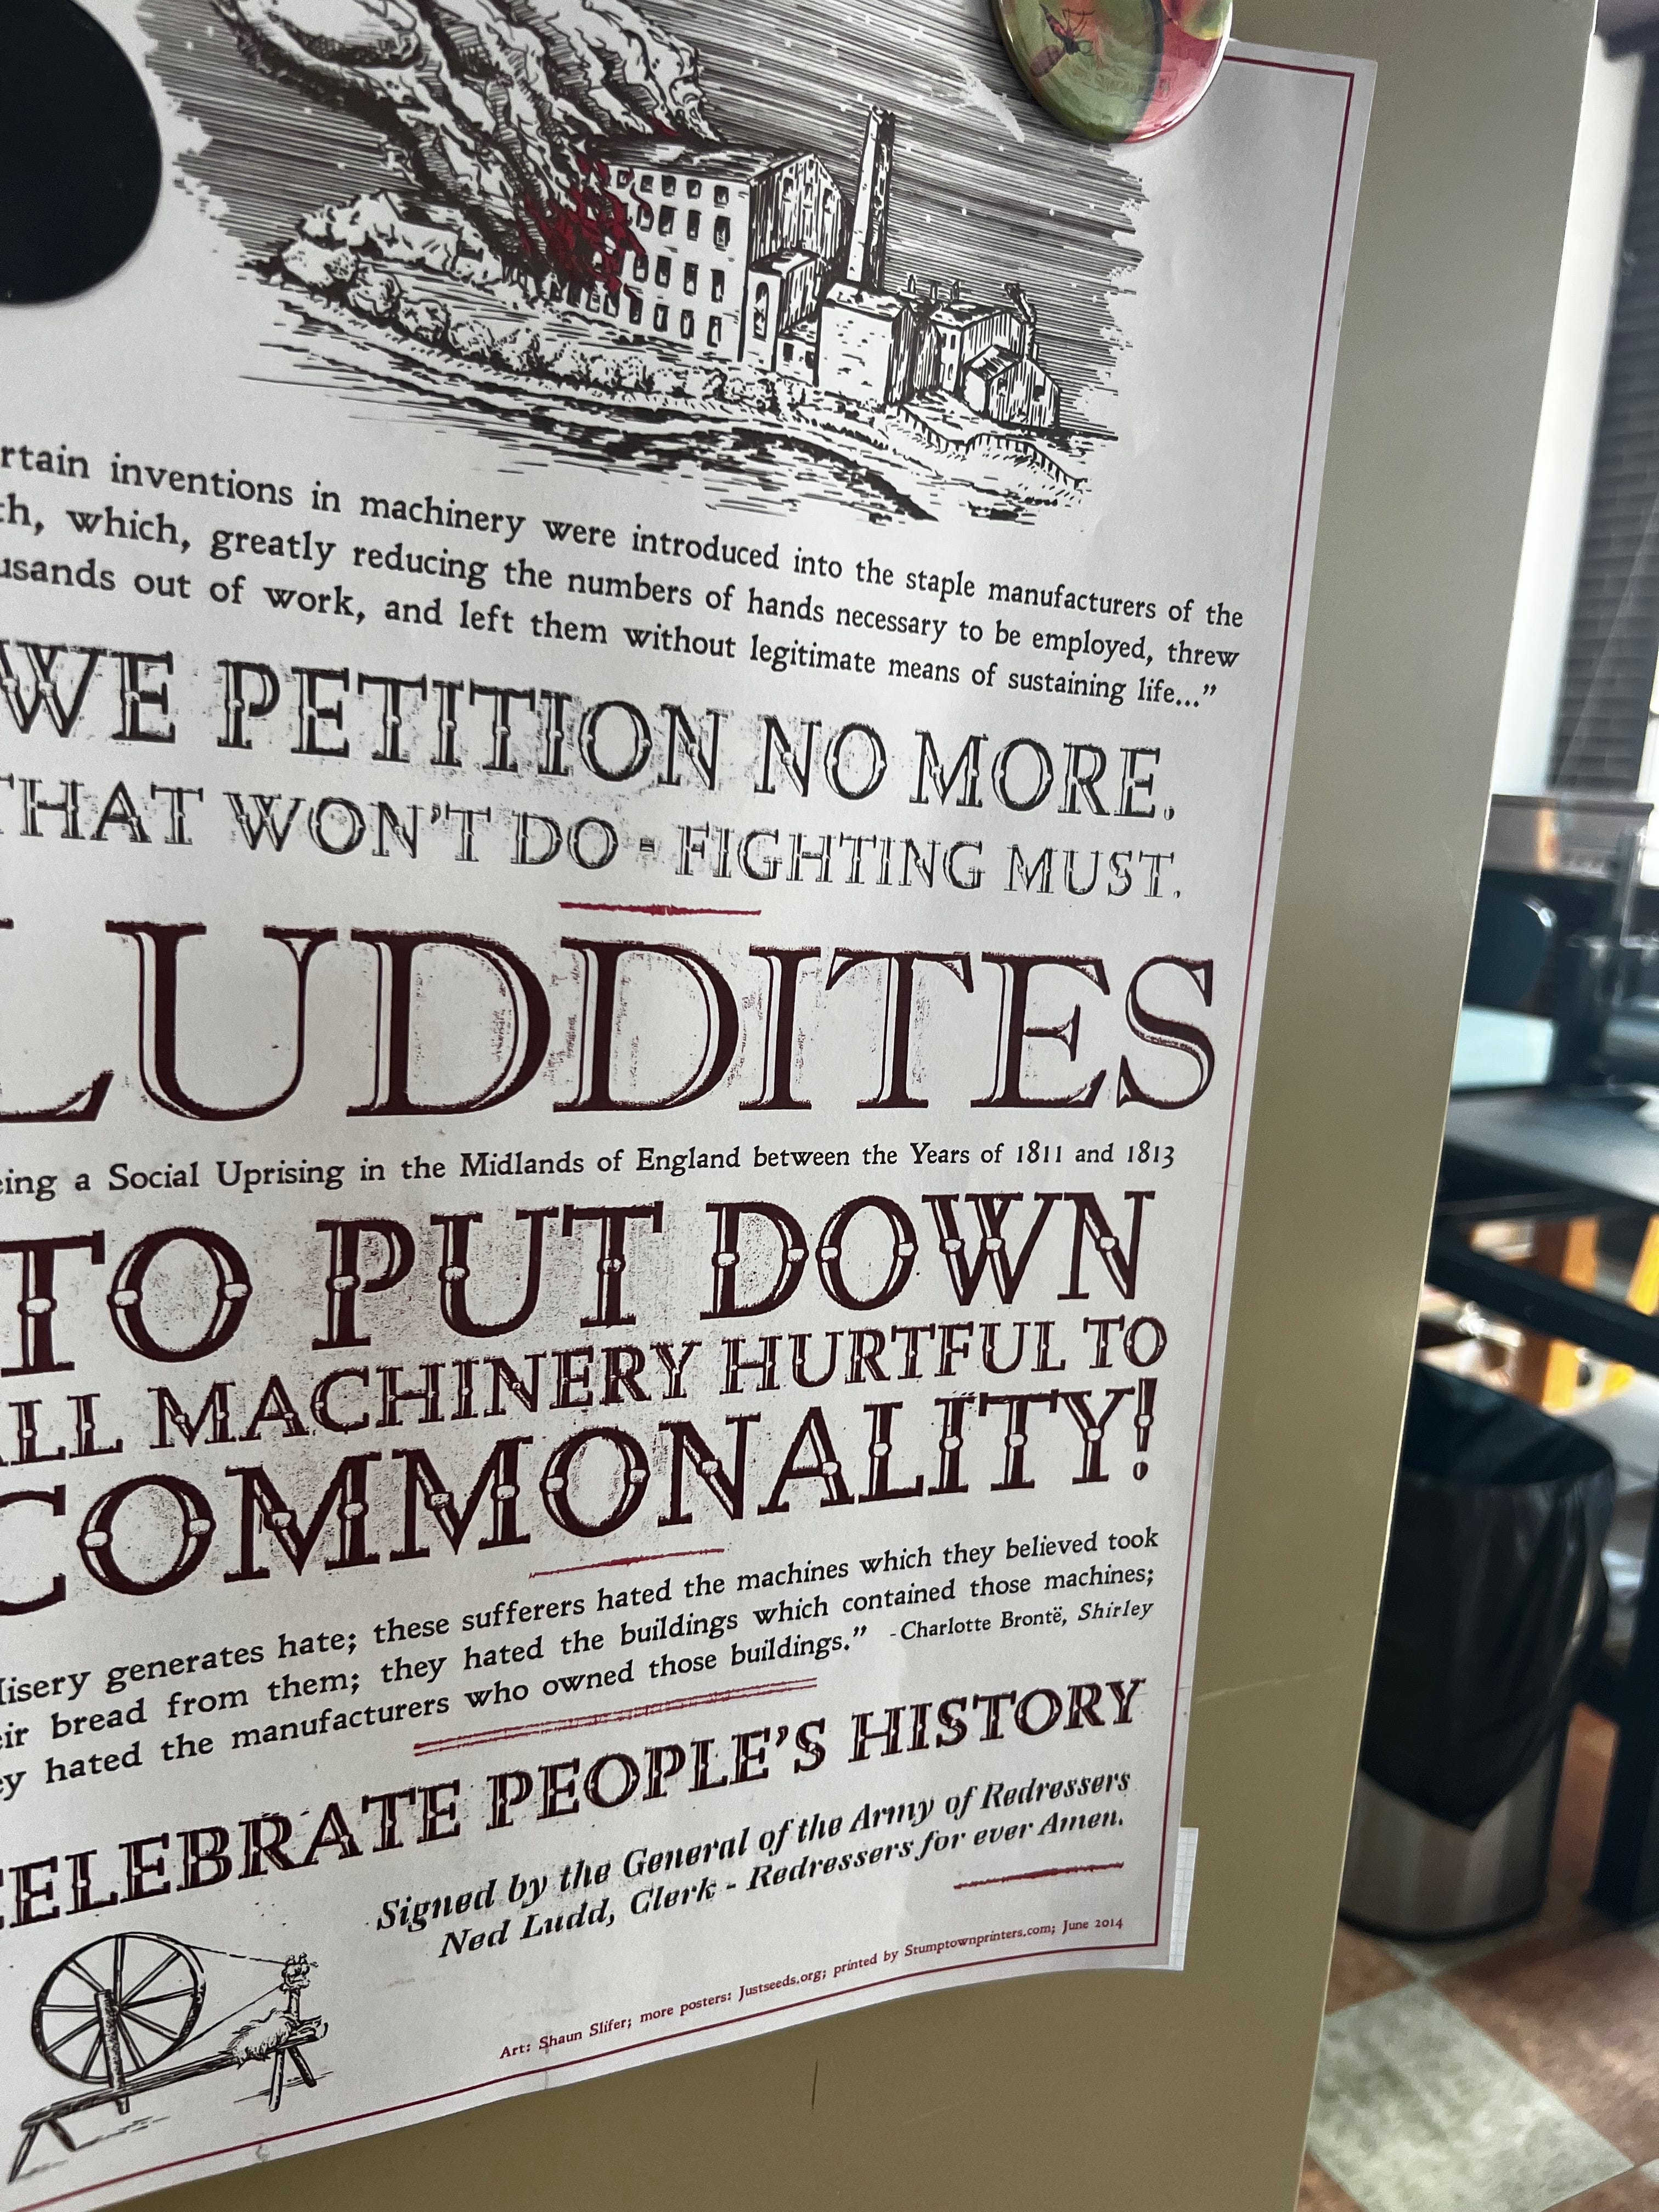 rtain inventions in machinery were introduced into the staple manufacturers of the
th, which, greatly reducing the numbers of hands necessary to be employed, threw
usands out of work, and left them without legitimate means of sustaining life...”
WE PETITION NO MORE.
THAT WON’T DO - FIGHTING MUST.
LUDDITES
eing a Social Uprising in the Midlands of England between the Years of 1811 and 1813
TO PUT DOWN
ALL MACHINERY HURTFUL TO
COMMONALITY!
Misery generates hate; these sufferers hated the machines which they believed took
eir bread from them; they hated the buildings which contained those machines;
ey hated the manufacturers who owned those buildings.” -Charlotte Brontë, Shirley
CELEBRATE PEOPLE’S HISTORY
Signed by the General of the Army of Redressers
Ned Ludd, Clerk - Redressers for ever Amen.
Art: Shaun Slifer; more posters: Justseeds.org; printed by Stumptownprinters.com; June 2014